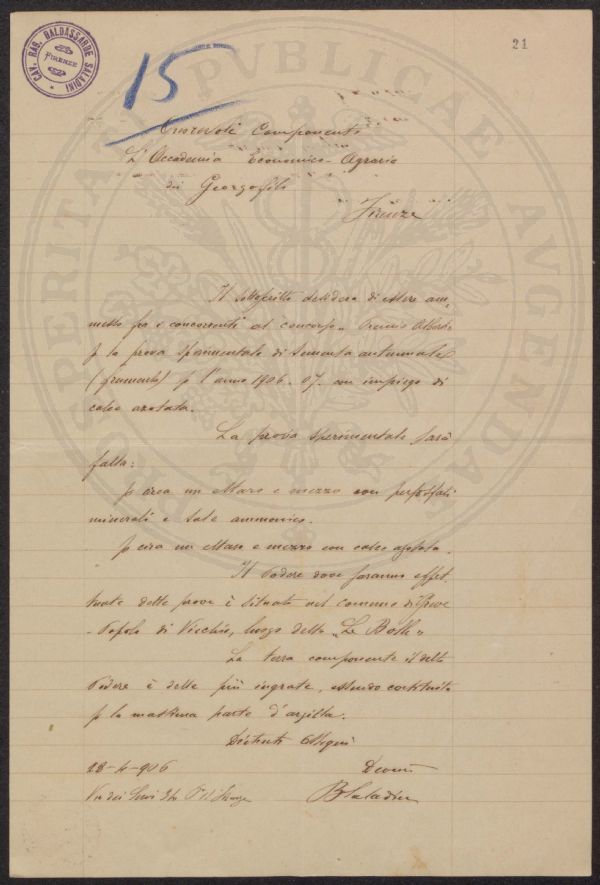 CAV. RAG. BALDASSARRE SALADINI
FIRENZE
21
15
PROSPERITATI PVBLICAE AVGENDAE
Onorevoli Componenti
L'Accademia Economico-Agraria
dei Georgofili
Firenze
Il sottoscritto desidera di essere am-
messo fra i concorrenti al concorso „ Premio Alberti
p la prova sperimentale di sementa autunnale
(frumento) p l'anno 1906-07. con impiego di
calce azotata.
La prova sperimentale sarà
fatta:
p circa un ettaro e mezzo con perfosfati
minerali e sale ammonico.
p circa un ettaro e mezzo con calce azotata.
Il Podere dove saranno effet-
tuate dette prove è situato nel comune di
Popolo di Vicchio, luogo detto „Le Botti"
La terra componente il detto
Podere è delle più ingrate, essendo costituita
p la massima parte d'argilla.
Distinti Ossequi
28-4-906
Devmo
Via dei Servi
BSaladini